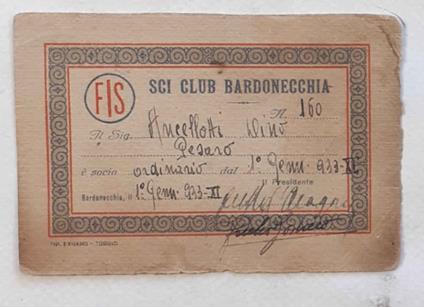 FIS
SCI CLUB BARDONECCHIA
N. 160
Il Sig. Ancellotti Dino
Pesaro
è socio ordinario dal 1° Genn. 933-XI
Il Presidente
Bardonecchia, il 1° Genn. 933-XI
TORINO